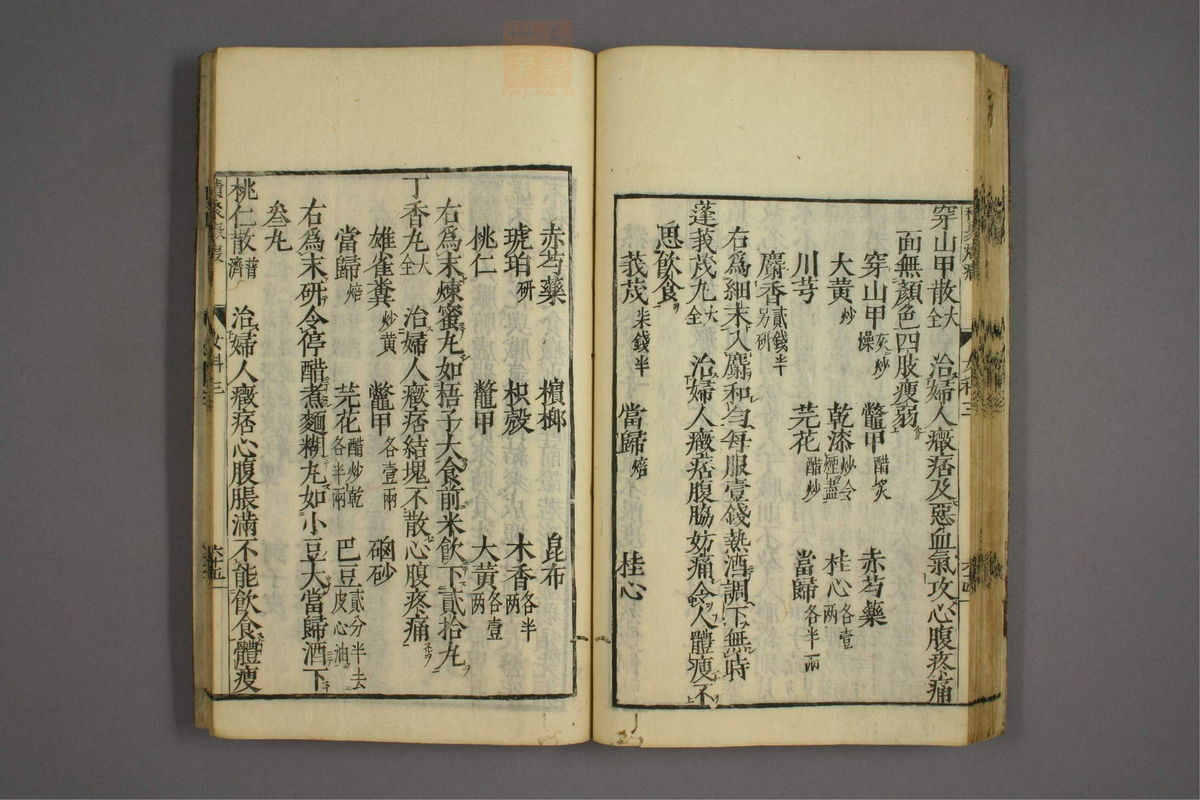 穿山甲散大全 治婦人癥痞及惡血氣攻心腹疼痛
面無顔色四肢瘦弱
穿山甲灰炒燥 鼈甲醋炙 赤芍藥
大黄炒 乾漆炒令煙盡 桂心各壹兩
川芎 芫花醋炒 當歸各半兩
麝香貳錢半另研
右爲細末入麝和匀每服壹錢熱酒調下無時
蓬莪茂丸大全 治婦人癥痞腹脇妨痛令人體瘦不
思飲食
莪茂柒錢半 當歸焙 桂心
赤芍藥 檳榔 昆布
琥珀研 枳殼 木香各半兩
桃仁 鼈甲 大黄各壹兩
右爲末煉蜜丸如梧子大食前米飲下貳拾丸
丁香丸大全 治婦人癥痞結塊不散心腹疼痛
雄雀糞炒黄 鼈甲各壹兩 硇砂
當歸焙 芫花醋炒乾各半兩 巴豆貳分半去皮心油
右爲末研令停醋煮麵糊丸如小豆大當歸酒下
叁丸
桃仁散普濟 治婦人癥痞心腹脹滿不能飲食體瘦
女科三
六十五